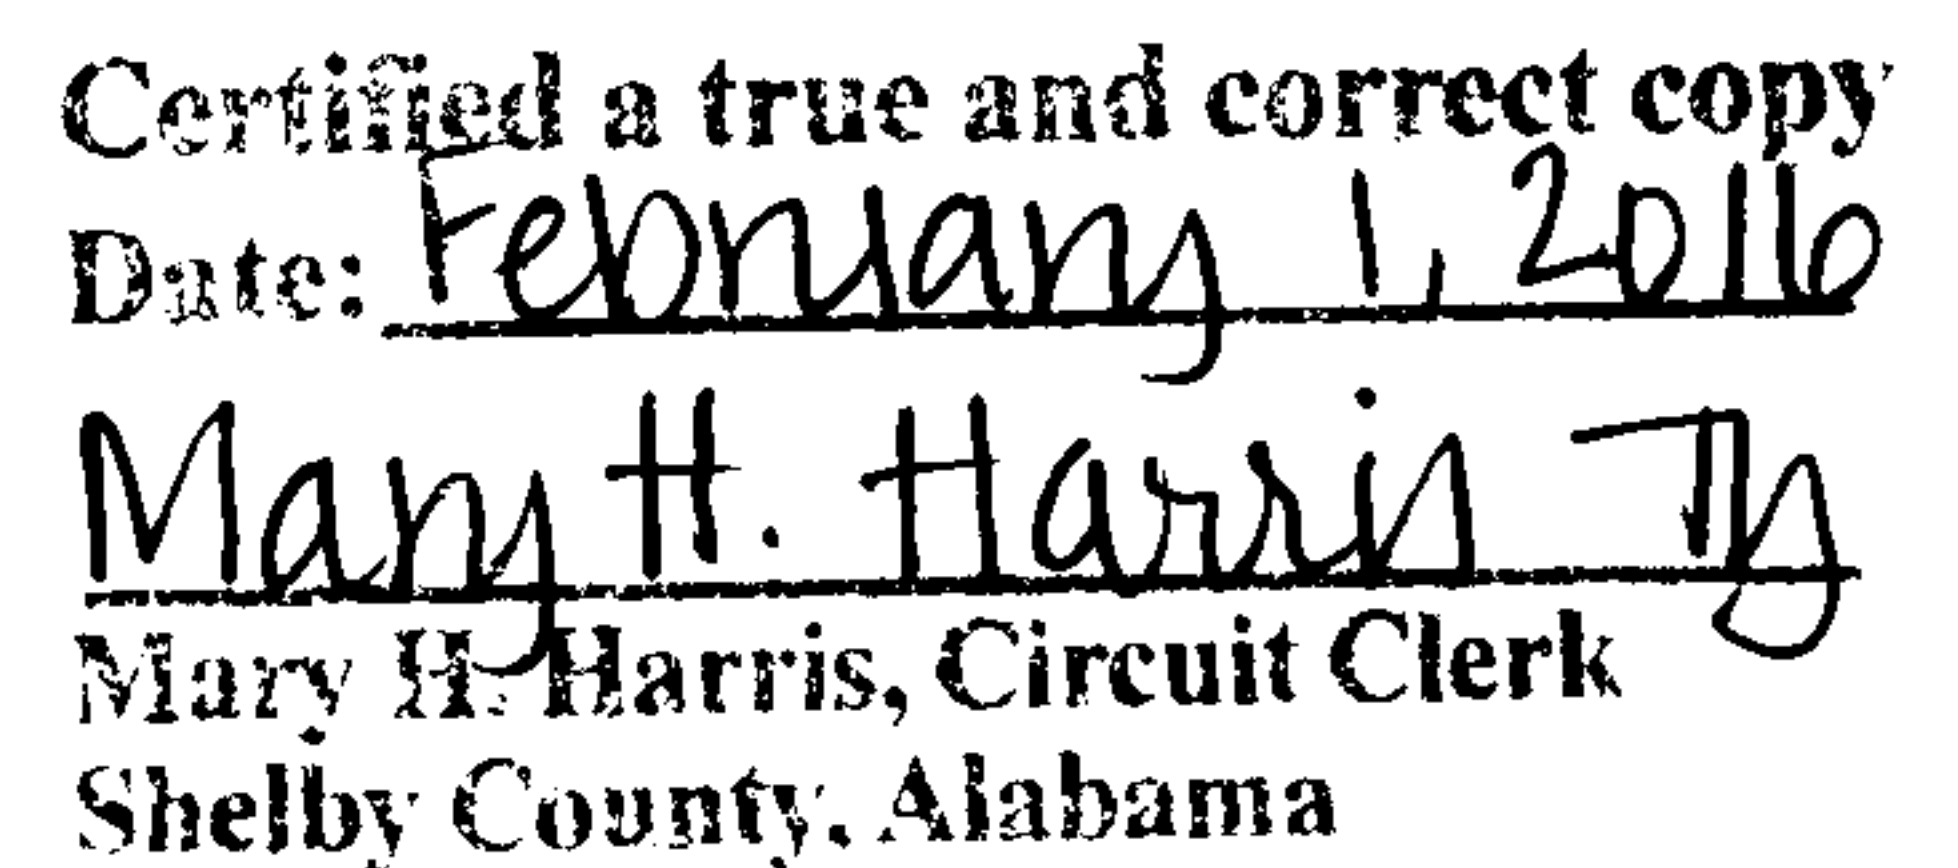 Certified a true and correct copy
Date: February 1, 2016
Mary H. Harris
Mary H. Harris, Circuit Clerk
Shelby County, Alabama